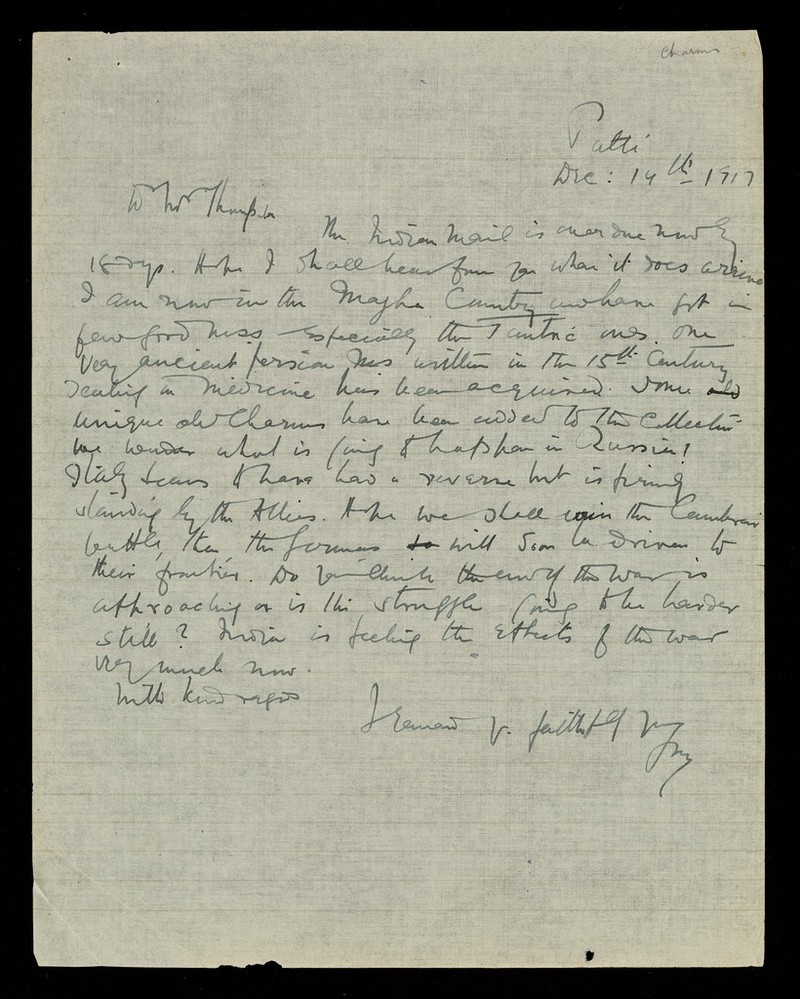 Charms
Patti
Dec: 14th 1917
Dr Mr Thompson
The Indian Mail is over due now by
18 days. Hope I shall hear from you when it does arrive
I am now in the Majha Country and have got in
few good mss especially the Tantric ones. One
Very ancient Persian Mss written in the 15th Century
dealing in Medicine has been acquired. Some old
unique old Charms have been added to the Collection
we wonder what is going to happen in Russia?
Italy seems to have had a reverse but is firmly
standing by the Allies. Hope we shall win the Cambrai
battle, then the Germans to will soon be driven to
their frontier. Do you think the end of the war is
approaching or is this struggle going to be harder
still? India is feeling the effects of the war
very much now.
With kind regards
I remain yr. faithfully